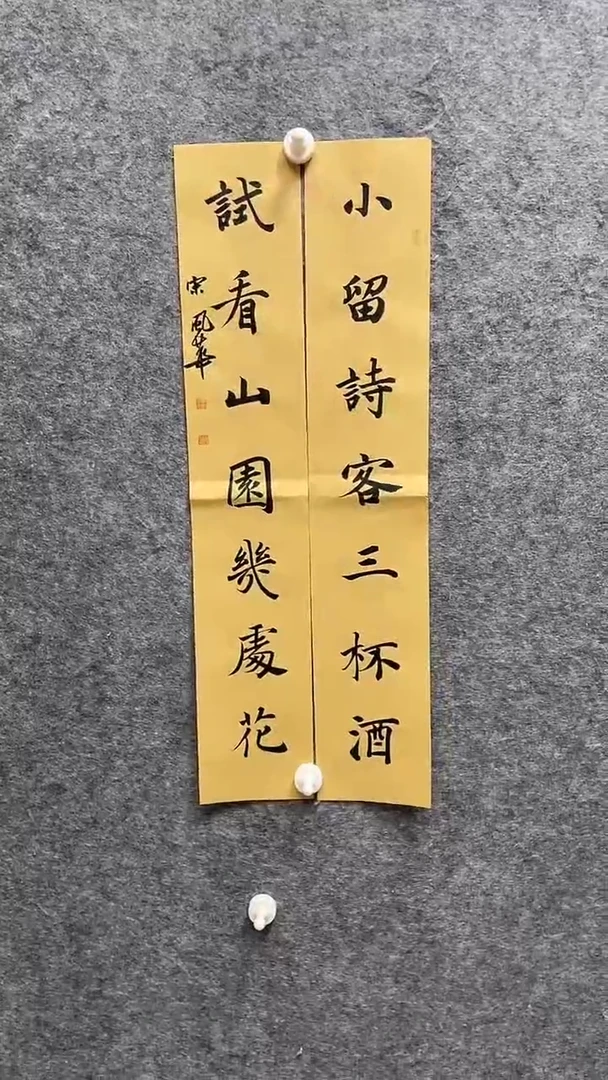 小留詩客三杯酒
試看山園幾處花
宋風華